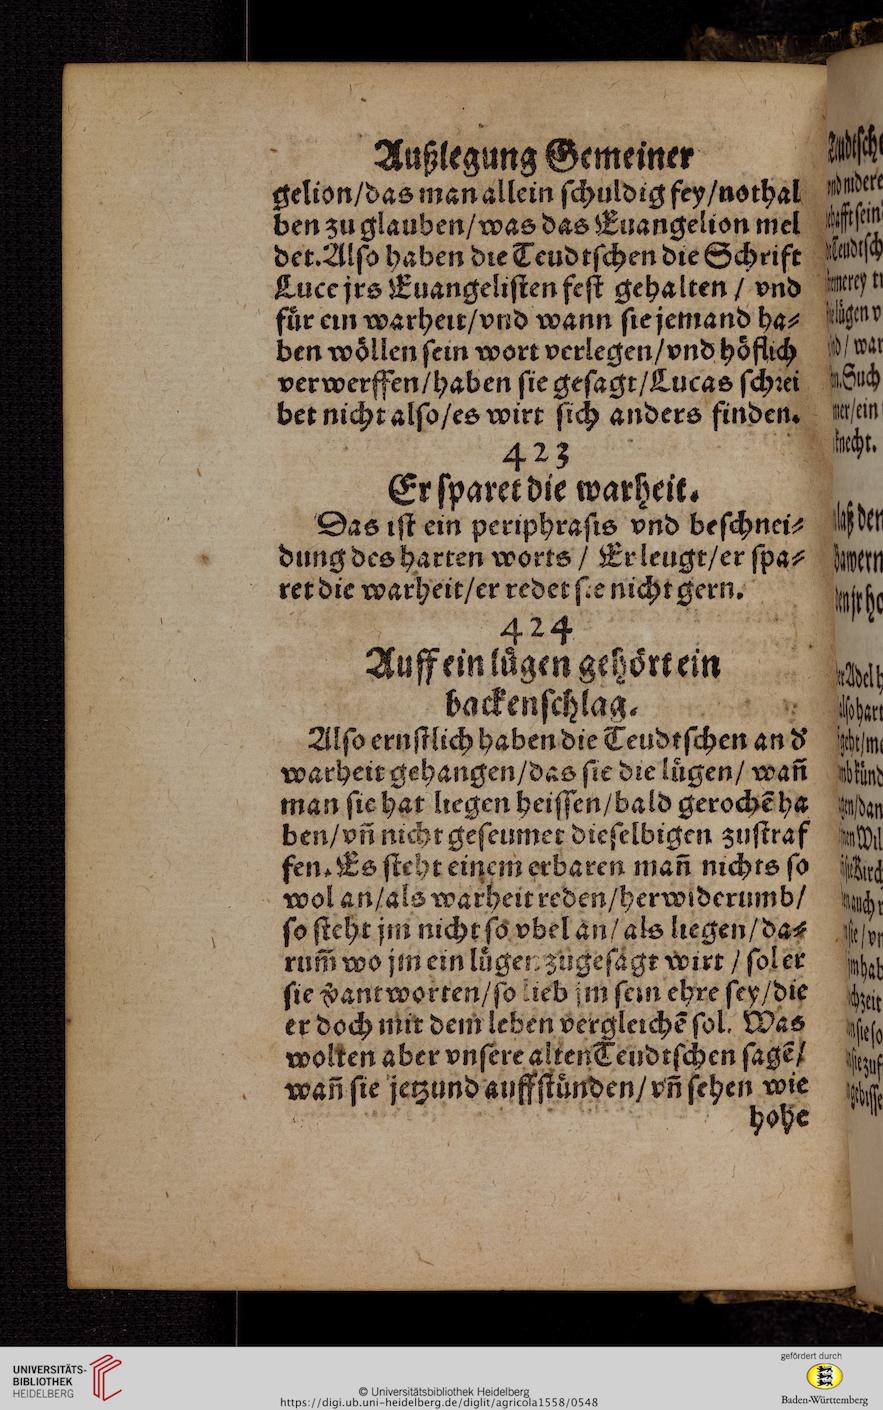 Außlegung Gemeiner
gelion/das man allein ſchuldig ſey/nothal
ben zu glauben/was das Euangelion mel
det. Alſo haben die Teudtſchen die Schrift
Luce jrs Euangeliſten feſt gehalten / vnd
fuͤr ein warheit/vnd wann ſie jemand ha⸗
ben woͤllen ſein wort verlegen/vnd hoͤflich
verwerffen/haben ſie geſagt/Lucas ſchꝛei
bet nicht alſo/es wirt ſich anders finden.
423
Er ſparet die warheit.
Das iſt ein periphraſis vnd beſchnei⸗
dung des harten worts / Er leugt/er ſpa⸗
ret die warheit/er redet ſie nicht gern.
424
Auff ein luͤgen gehoͤrt ein
backenſchlag.
Alſo ernſtlich haben die Teudtſchen an dˀ
warheit gehangen/das ſie die luͤgen/ wañ
man ſie hat liegen heiſſen/bald gerochẽ ha
ben/vñ nicht geſeumet dieſelbigen zuſtraf
fen. Es ſteht einem erbaren mañ nichts ſo
wol an/als warheit reden/herwiderumb/
ſo ſteht jm nicht ſo vbel an/ als liegen/da⸗
rum̃ wo jm ein luͤgen zugeſagt wirt / ſol er
ſie v̓antworten/ſo lieb jm ſein ehre ſey/die
er doch mit dem leben vergleichẽ ſol. Was
wolten aber vnſere alten Teudtſchen ſagẽ/
wañ ſie jetzund auffſtuͤnden/vñ ſehen wie
hohe
UNIVERSITÄTS-
BIBLIOTHEK
HEIDELBERG
© Universitätsbibliothek Heidelberg
https://digi.ub.uni-heidelberg.de/diglit/agricola1558/0548
gefördert durch
Baden-Württemberg